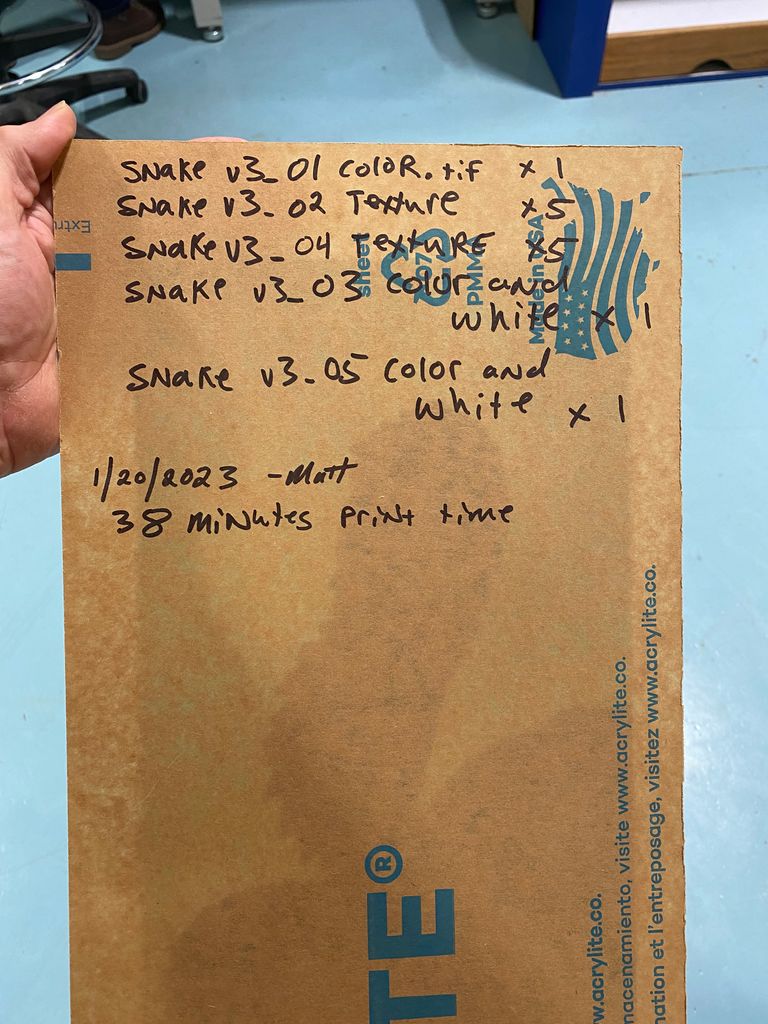 Snake v3_01 color.tif x 1
Snake v3_02 Texture x5
Snake v3_04 TEXTURE x5
Snake v3_03 color and
white x 1
Snake v3_05 color and
white x 1
1/20/2023 -Matt
38 minutes print time
Extru
sheet
PMMA
Made in USA
TE®
w.acrylite.co.
nacenamiento, visite www.acrylite.co.
nation et l'entreposage, visitez www.acrylite.co.